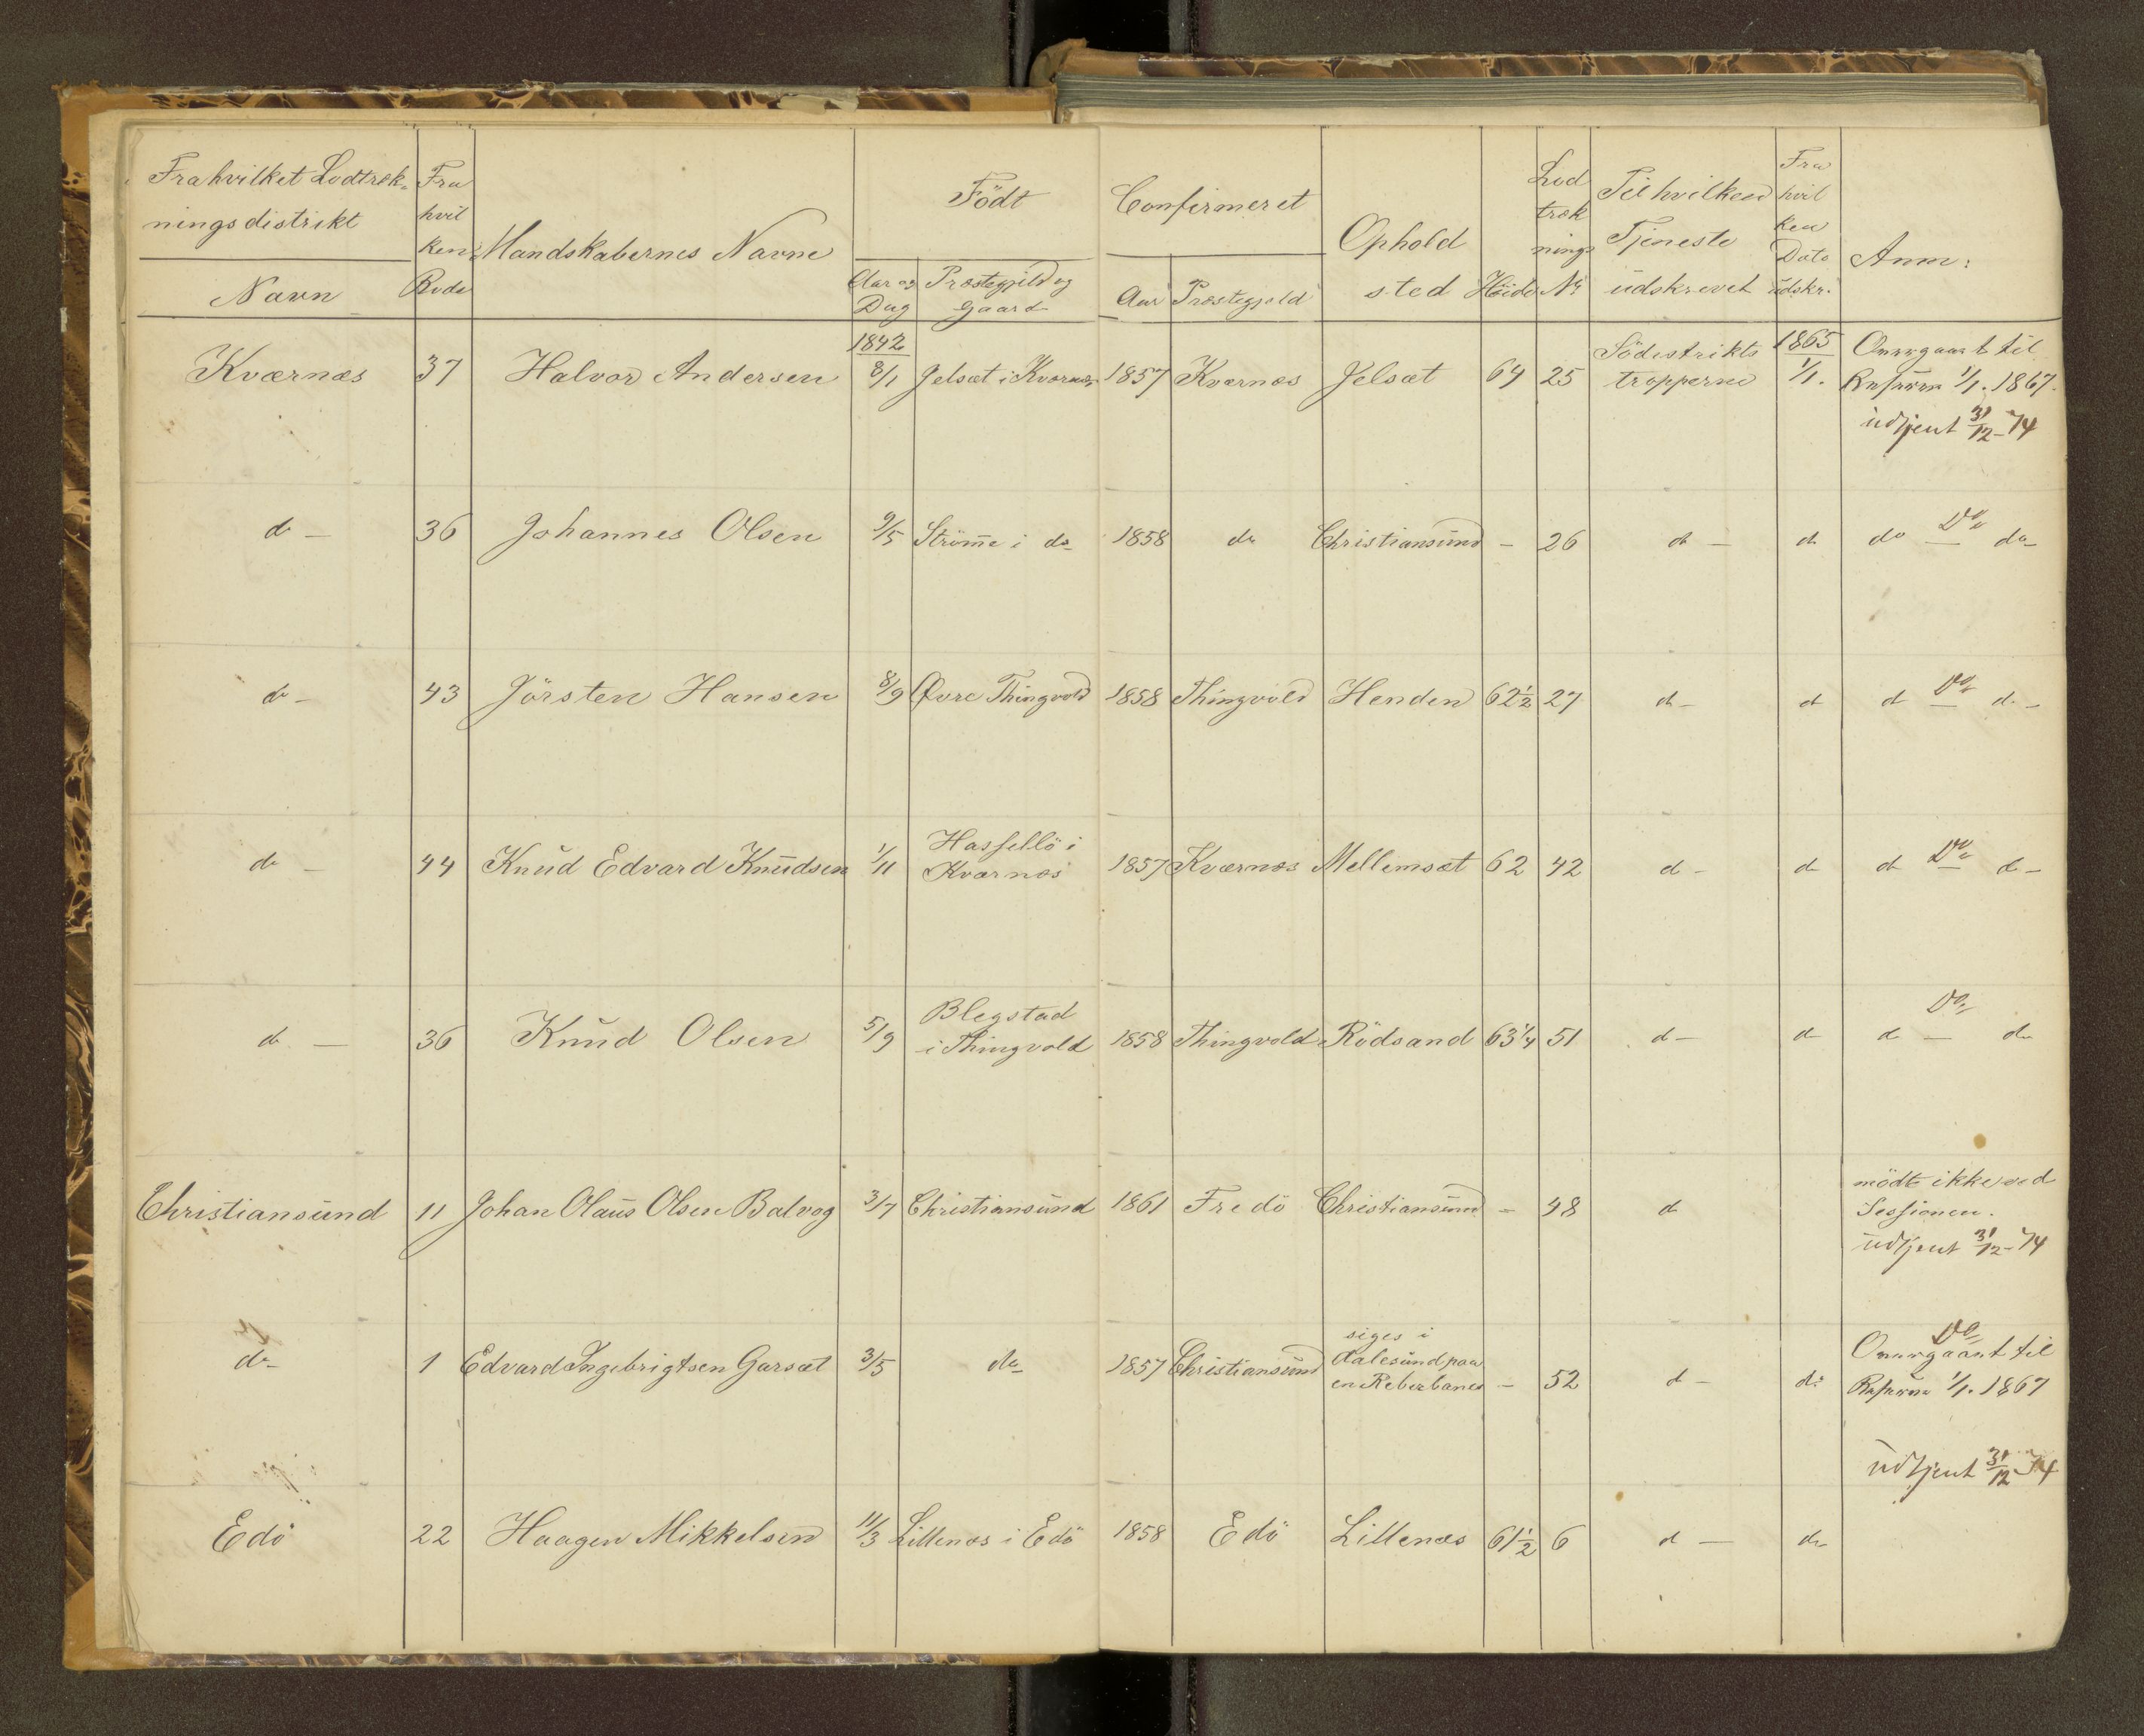 Fra hvilket Lodtræk-
ningsdistrikt
Navn
Fra
hvil
ken
Rode
Mandskabernes Navne
Födt
Aar og
Dag
Præstegjeld og
Gaard
Confirmeret
Aar
Præstegjeld
Ophold
sted
Höide
Lod
træk
nings
No
Til hvilken
Tjeneste
udskrevet
Fra
hvil
ken
Dato
udskr.
Anm:
Kværnæs 37 Halvor Andersen 1842 8/1 Jelsæt i Kværnæs 1857 Kværnæs Jelsæt 64 25 Södistrikts 1865 Overgaaet til
tropperne 1/1. Reserven 1/1. 1867.
udtjent 31/12-74
do - 36 Johannes Olsen 9/5 Ströme i do 1858 do Christiansund - 26 do - do do Do do
do - 43 Jörsten Hansen 8/9 Övre Thingvold 1858 Thingvold Henden 62 1/2 27 do - do do Do do -
do - 44 Knud Edvard Knudsen 1/11 Hassellö i
Kværnæs 1857 Kværnæs Mellemsæt 62 42 do - do do Do do -
do - 36 Knud Olsen 5/9 Blegstad
i Thingvold 1858 Thingvold Rödsand 63 1/4 51 do - do do Do do
Christiansund 11 Johan Olaus Olsen Bolvog 3/7 Christiansund 1861 Fredö Christiansund - 48 do mödte ikke ved
Sessionen.
udtjent 31/12-74
do 1 Edvard Ingebrigtsen Garsæt 3/5 do 1857 Christiansund siges i
Aalesund paa
en Reberbane - 52 do - do Do
Overgaaet til
Reserven 1/1. 1867
udtjent 31/12 74
Edö 22 Haagen Mikkelsen 11/3 Lillenæs i Edö 1858 Edö Lillenæs 61 1/2 6 do - do